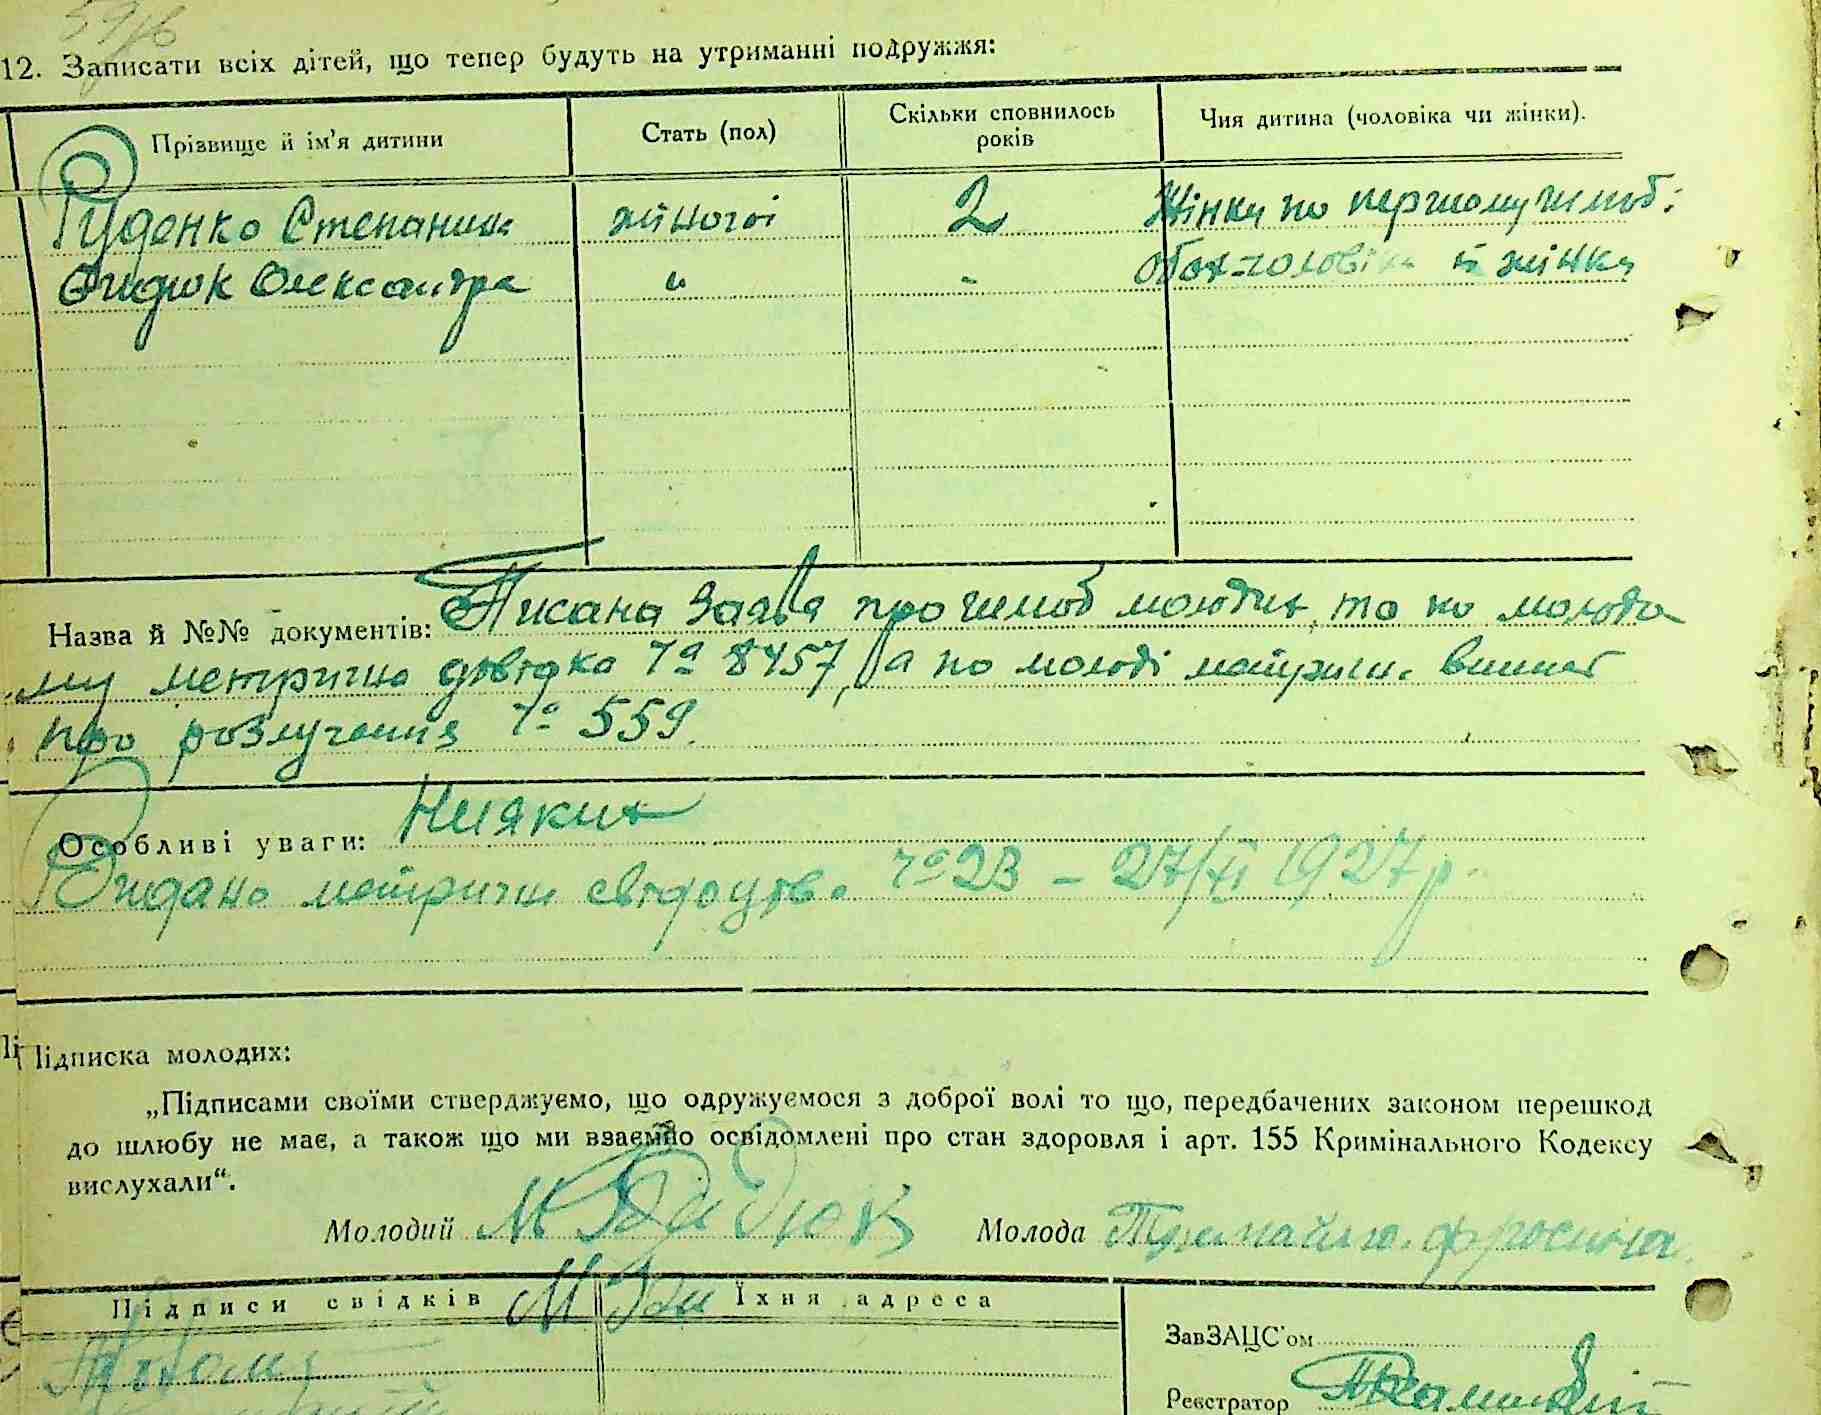 12. Записати всіх дітей, що тепер будуть на утриманні подружжя:
Прізвище й ім'я дитини Стать (пол) Скільки сповнилось років Чия дитина (чоловіка чи жінки).
Руденко Степанида жіночої 2 Жінки по першому шлюб:
Олександра " " обох-чоловіка й жінки
Назва й №№ документів: Писана заява про шлюб молодих, та по молодо
му метрична довідка № 8457, а по молоді метричн. виписі
про розлучення № 559.
Особливі уваги: Ніяких
Видано метричн свідоцтво №23 – 27/XI 1927 р.
Підписка молодих:
„Підписами своїми стверджуємо, що одружуємося з доброї волі то що, передбачених законом перешкод
до шлюбу не має, а також що ми взаємно освідомлені про стан здоровля і арт. 155 Кримінального Кодексу
вислухали“.
Молодий М Молода фросина
Підписи свідків Їхня адреса
ЗавЗАЦС'ом
Реєстратор